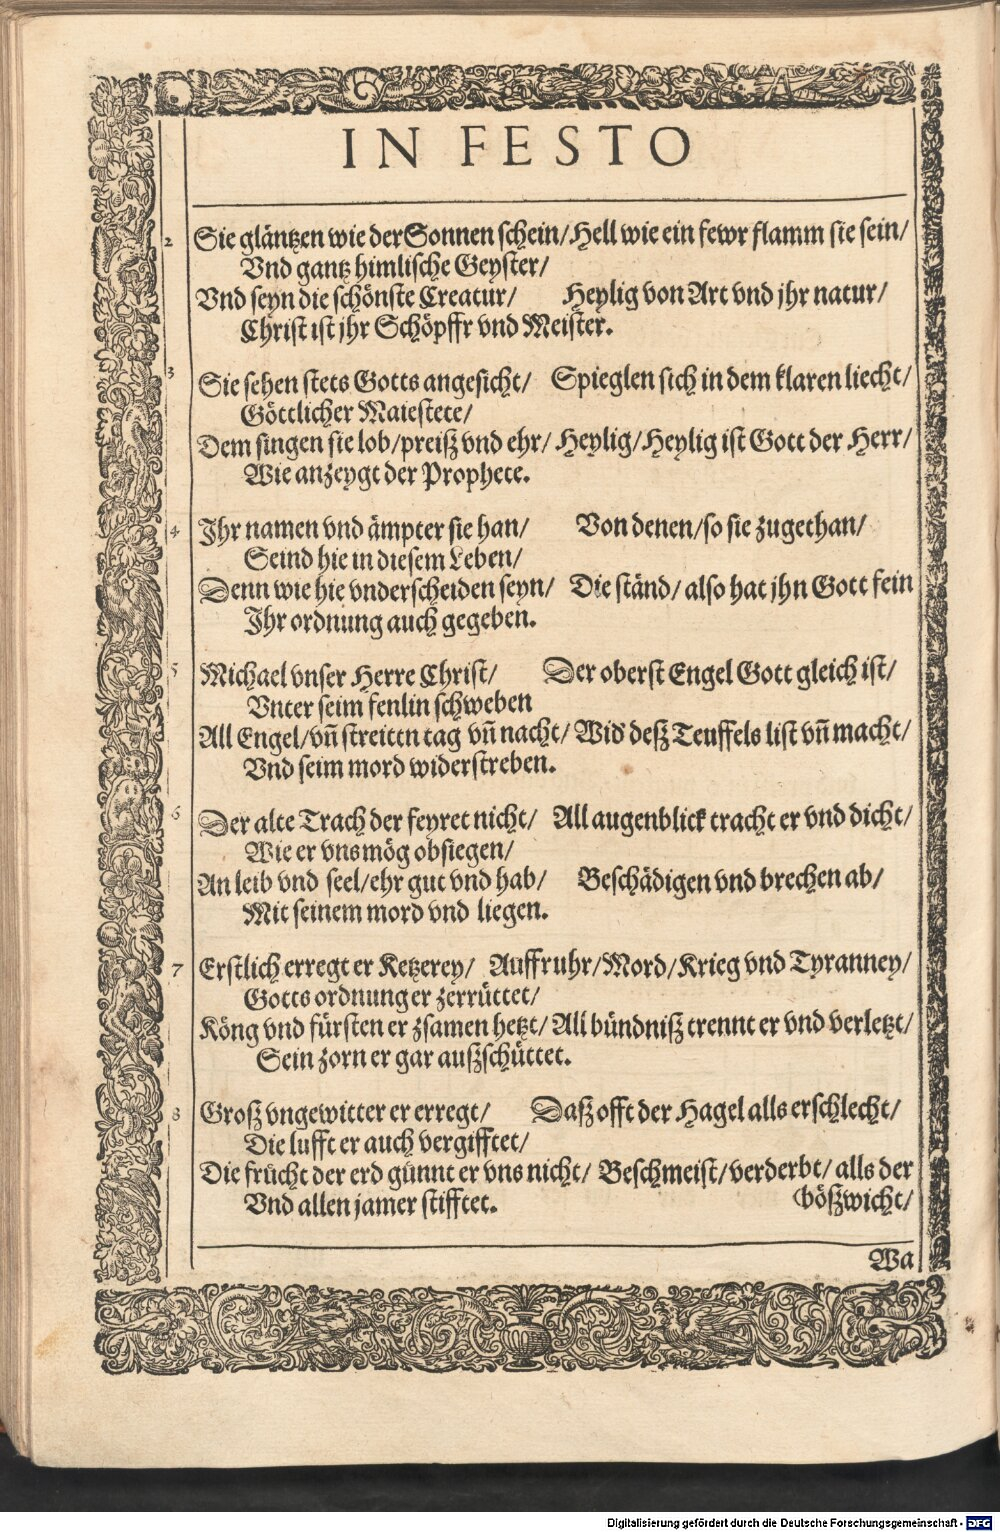 IN FESTO
2 Sie gläntzen wie der Sonnen schein/ Hell wie ein fewr flamm sie sein/
Vnd gantz himlische Geyster/
Vnd seyn die schönste Creatur/ Heylig von Art vnd jhr natur/
Christ ist jhr Schöpffr vnd Meister.
3 Sie sehen stets Gotts angesicht/ Spieglen sich in dem klaren liecht/
Göttlicher Maiestete/
Dem singen sie lob/preisz vnd ehr/ Heylig/Heylig ist Gott der Herr/
Wie anzeygt der Prophete.
4 Jhr namen vnd ämpter sie han/ Von denen/so sie zugethan/
Seind hie in diesem Leben/
Denn wie hie vnderscheiden seyn/ Die ständ/ also hat jhn Gott fein
Jhr ordnung auch gegeben.
5 Michael vnser Herre Christ/ Der oberst Engel Gott gleich ist/
Vnter seim fenlin schweben
All Engel/vñ streittn tag vñ nacht/ Wid' desz Teuffels list vñ macht/
Vnd seim mord widerstreben.
6 Der alte Trach der feyret nicht/ All augenblick tracht er vnd dicht/
Wie er vns mög obsiegen/
An leib vnd seel/ehr gut vnd hab/ Beschädigen vnd brechen ab/
Mit seinem mord vnd liegen.
7 Erstlich erregt er Ketzerey/ Auffruhr/Mord/Krieg vnd Tyranney/
Gotts ordnung er zerrüttet/
Köng vnd fürsten er zsamen hetzt/ All bündnisz trennt er vnd verletzt/
Sein zorn er gar auszschüttet.
8 Grosz vngewitter er erregt/ Dasz offt der Hagel alls erschlecht/
Die lufft er auch vergifftet/
Die frücht der erd günnt er vns nicht/ Beschmeist/verderbt/ alls der
Vnd allen jamer stifftet. (böszwicht/
Wa
Digitalisierung gefördert durch die Deutsche Forschungsgemeinschaft - DFG